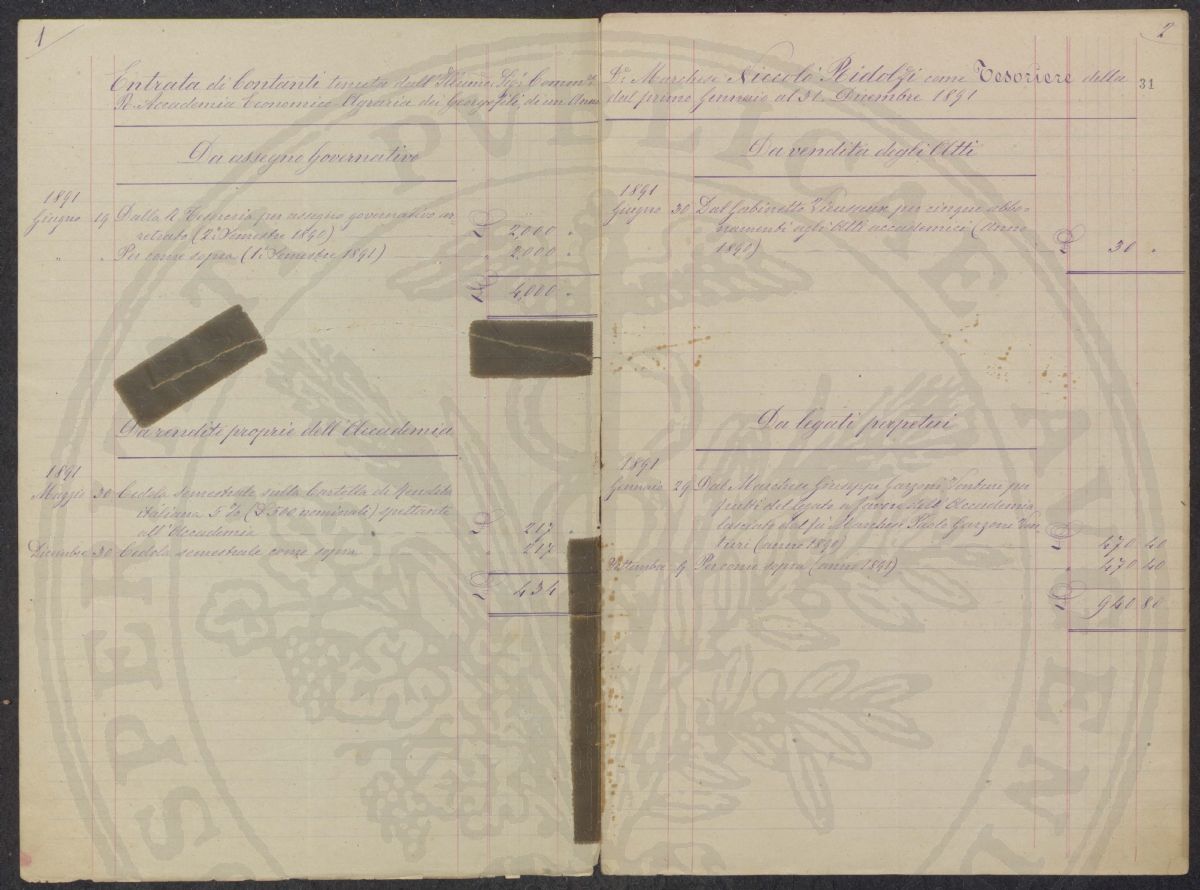 1
Entrata di Contanti tenuta dall' Illmo. Sig. Comm.
R. Accademia Economico Agraria dei Georgofili, di un Anno
Da assegno Governativo
1891
Giugno 19 Dalla R. Tesoreria per assegno governativo ar-
retrato (2º Semestre 1890) £ 2,000 "
" " Per come sopra (1º Semestre 1891) " 2,000 "
£ 4,000 "
Da rendite proprie dell' Accademia
1891
Maggio 30 Cedola semestrale sulla Cartella di Rendita
italiana 5 % (£ 500 nominali) spettante
all' Accademia £ 217 "
Dicembre 30 Cedola semestrale come sopra " 217
£ 434
2
31
Marchese Niccolò Ridolfi come Tesoriere della
dal primo Gennaio al 31. Dicembre 1891
Da vendita degli Atti
1891
Giugno 30 Dal Gabinetto Vieusseux per cinque abbo-
namenti agli Atti accademici (Anno
1890) £ 30 "
Da legati perpetui
1891
Gennaio 29 Dal Marchese Giuseppe Garzoni Venturi per
frutti del legato a favore dell' Accademia
lasciato dal fù Marchese Paolo Garzoni Ven-
turi (anno 1890) £ 470 40
Settembre 9 Per come sopra (anno 1891) " 470 40
£ 940 80
PVBLICAE
SPEM